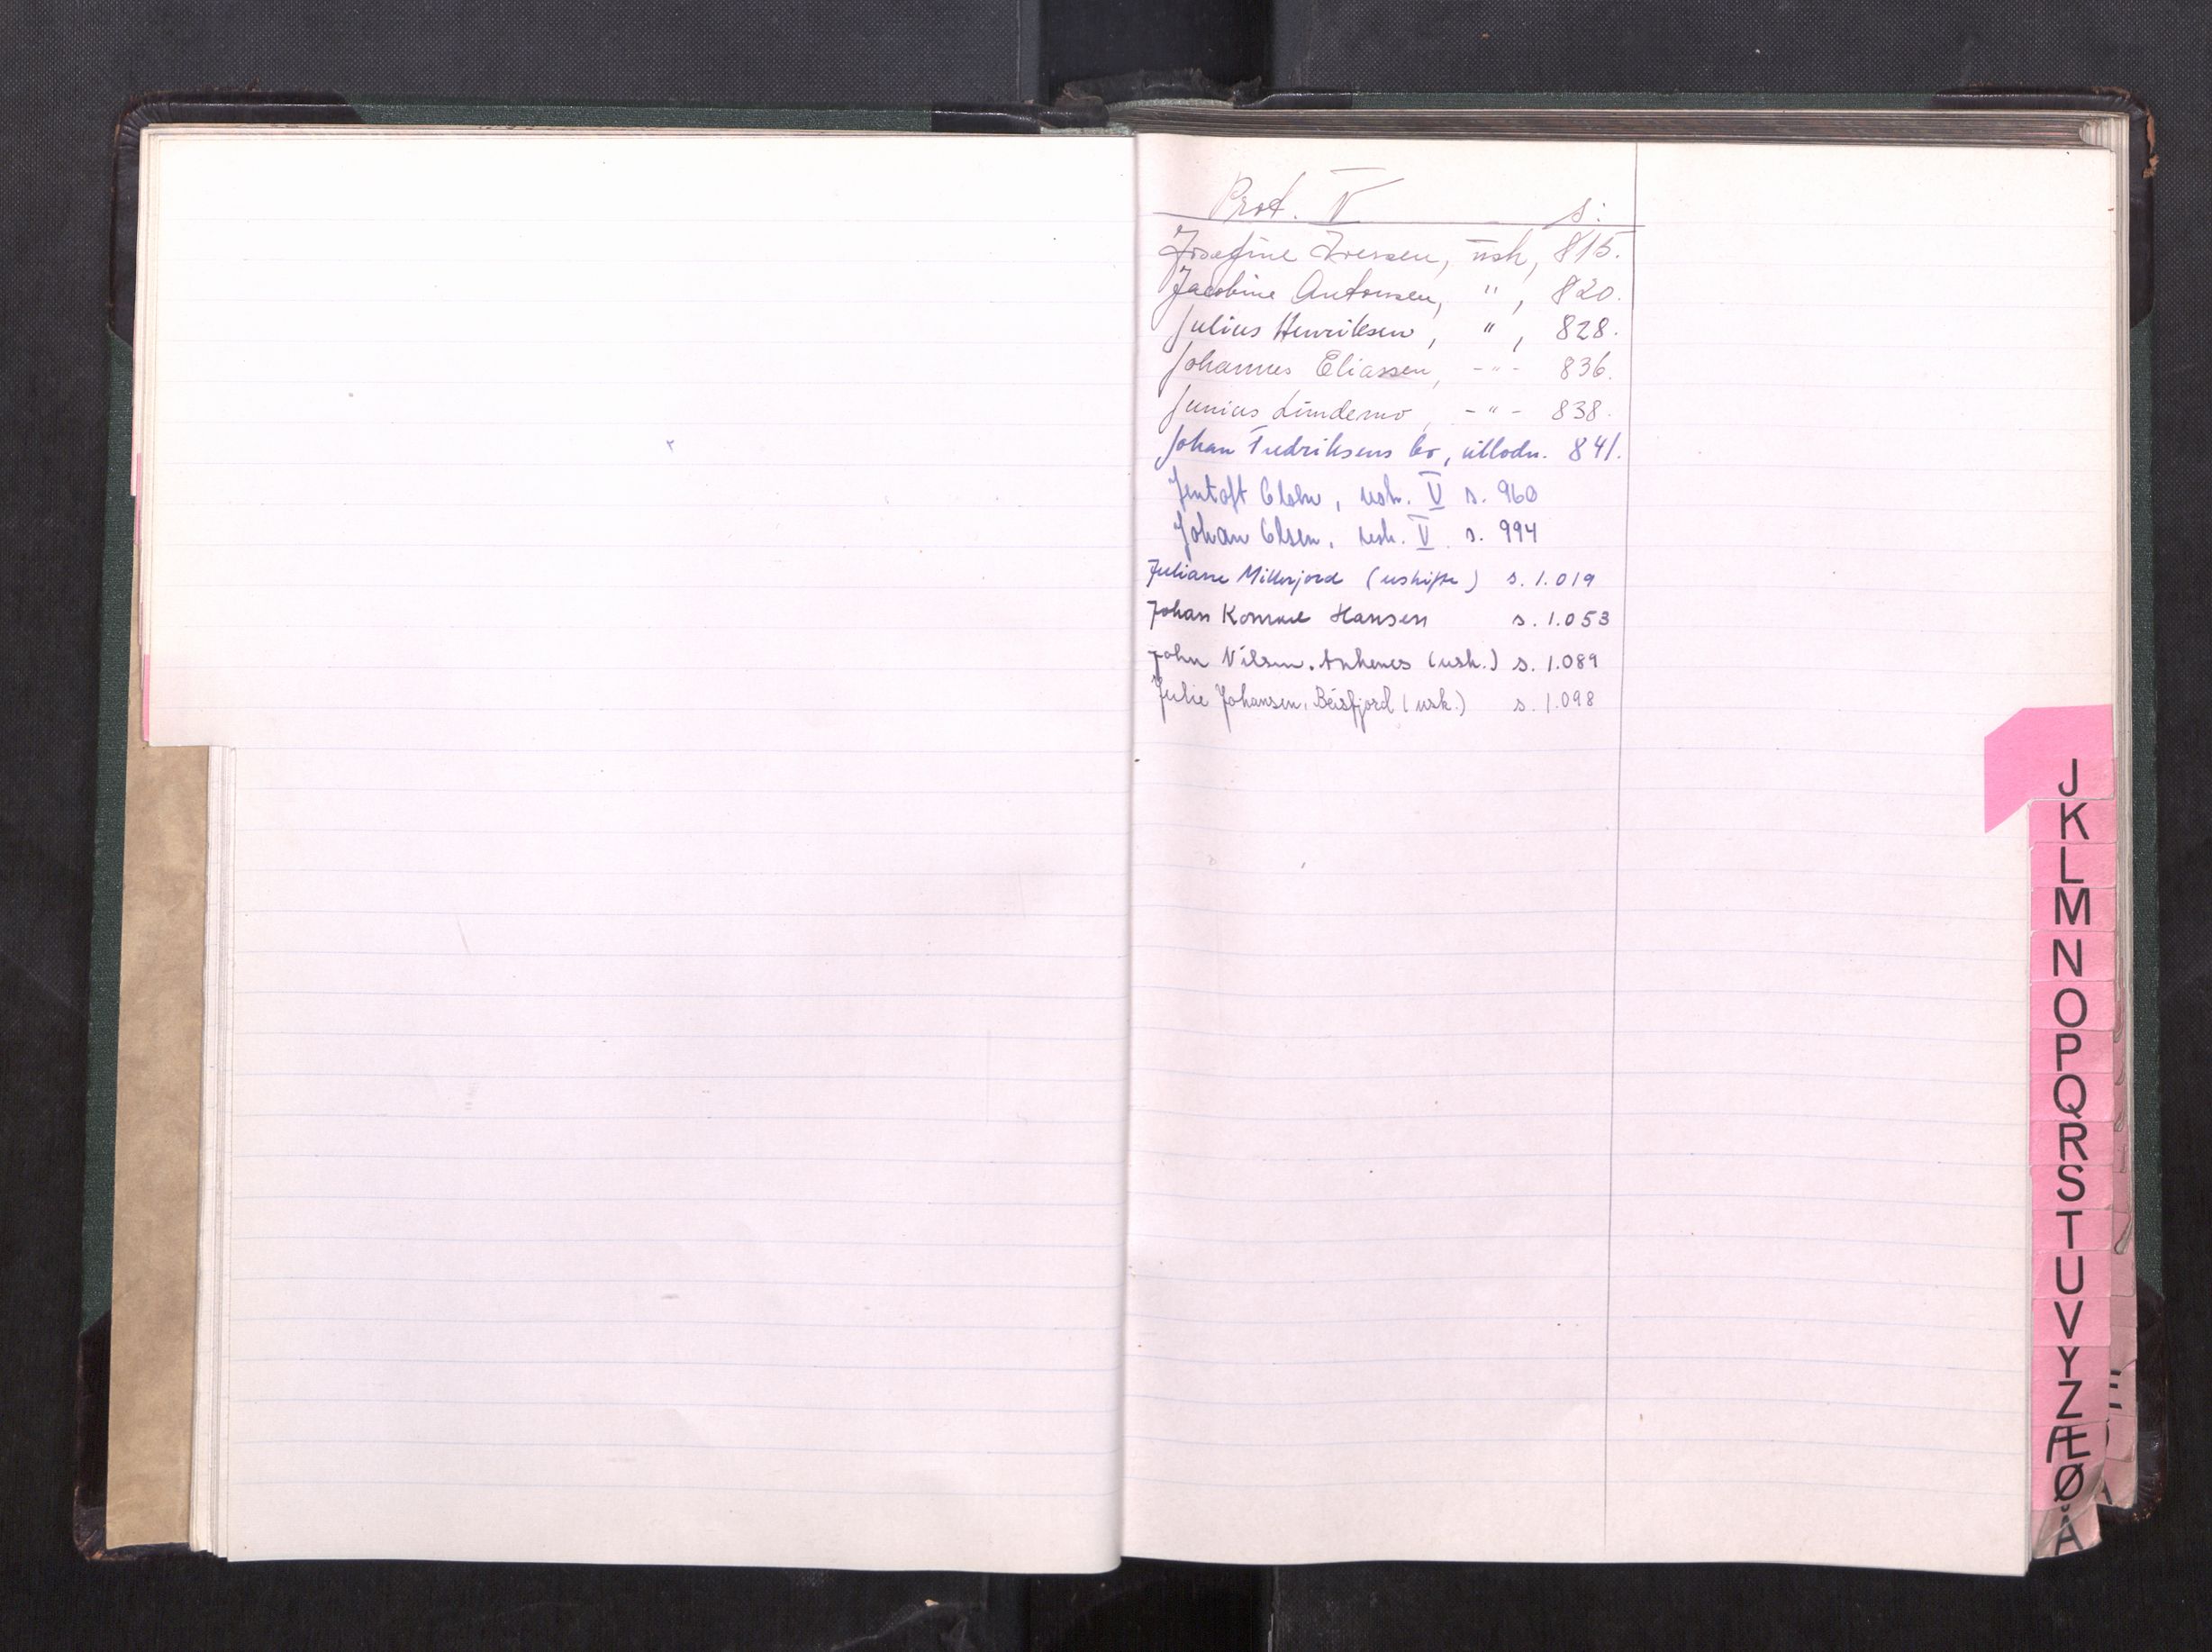 Prot. V s:
Josefine Iversen, üsk, 815.
Jacobine Antonsen, " , 820.
Julius Henriksen, " , 828.
Johannes Eliassen, -"- 836.
Junius Lindemo, -"- 838.
Johan Fredriksens bo, utlodn. 841.
Jentoft Olsen, usk. V s. 960
Johan Olsen, usk. V. s. 994
Juliane Millerjord (uskifte) s. 1.019
Johan Konrad Hansen s. 1.053
John Nilsen, Ankenes (usk.) s. 1.089
Julie Johansen, Beisfjord (usk.) s. 1.098
J
K
L
M
N
O
P
Q
R
S
T
U
V
Y
Z
Æ
Ø
Å